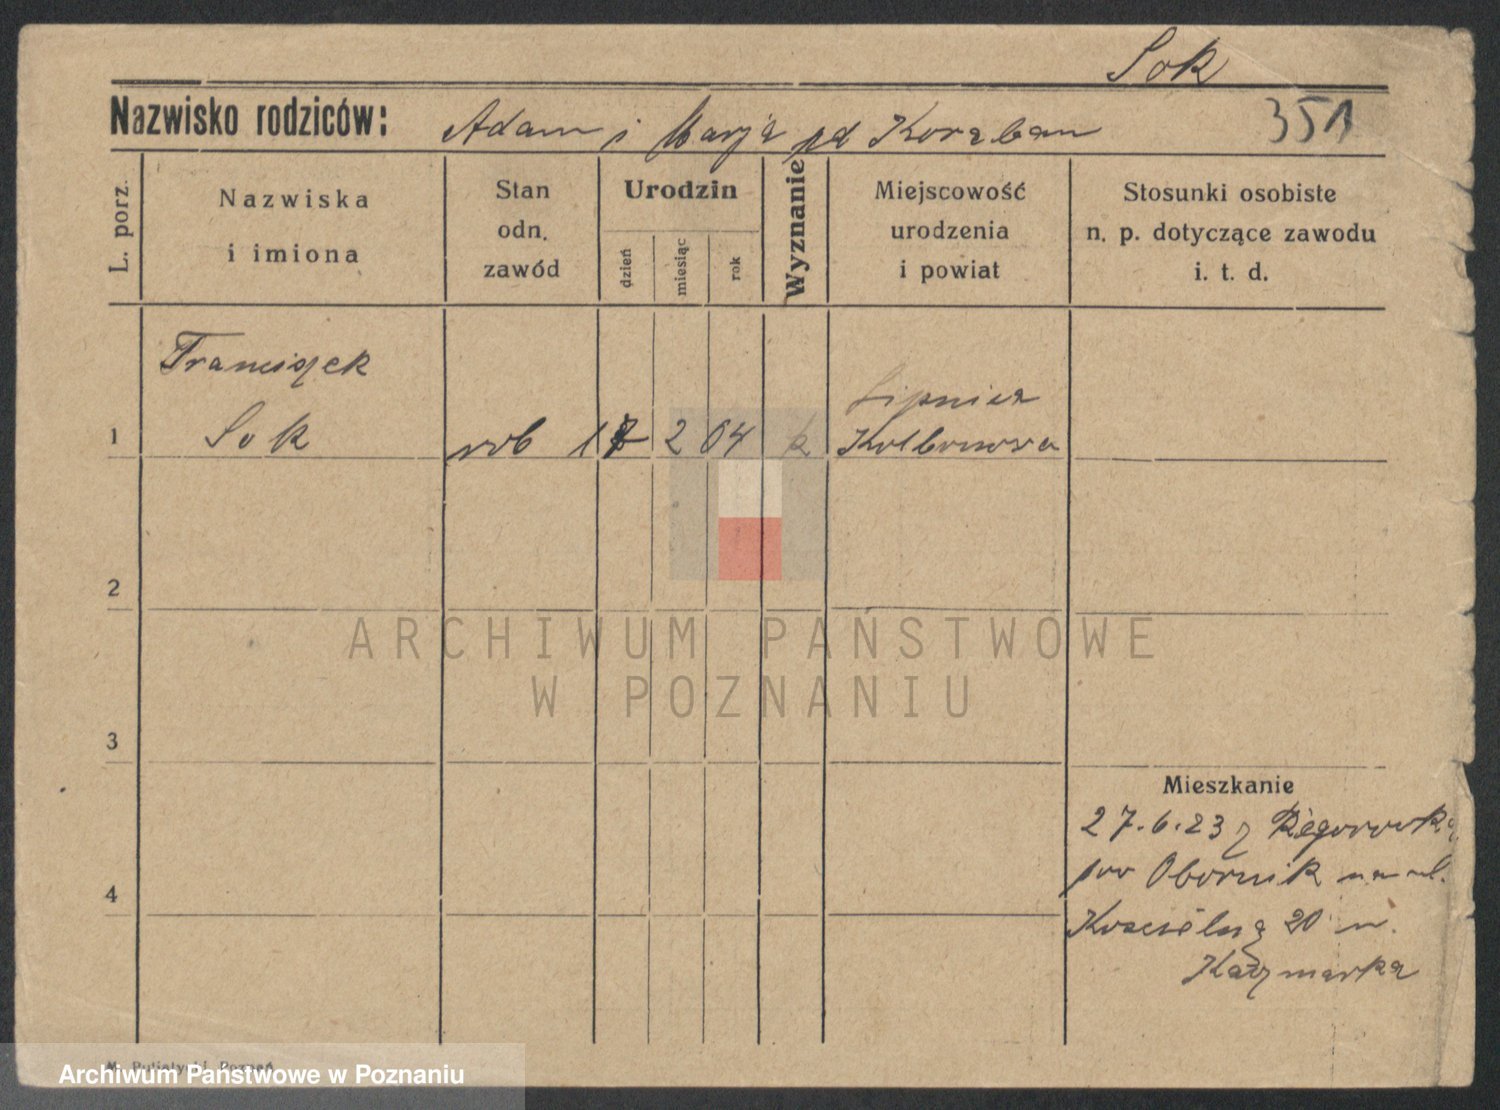 Sok
Nazwisko rodziców: Adam i Marja pd Koraban
351
L. porz.
Nazwiska
i imiona
Stan
odn.
zawód
Urodzin
dzień
miesiąc
rok
Wyznanie
Miejscowość
urodzenia
i powiat
Stosunki osobiste
n. p. dotyczące zawodu
i. t. d.
Franciszek
Lipnica
1 Sok rob 17 2 04 k Kolbuszowa
2
ARCHIWUM PAŃSTWOWE
W POZNANIU
3
Mieszkanie
27.6.23 z
pow Obornik na ul.
4
Kościelną 20 u.
Kaczmarka
Poznań
Archiwum Państwowe w Poznaniu